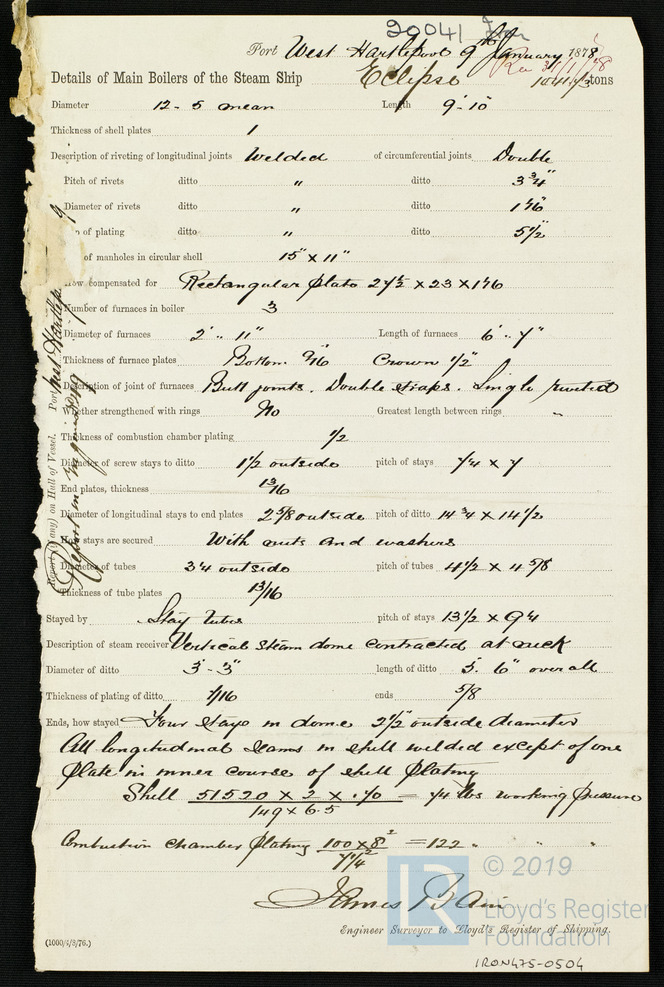 20041 Iron
Port West Hartlepool 9th January 1878
Rec 31/1/78
Details of Main Boilers of the Steam Ship Eclipse tons
Diameter 12 - 5 mean Length 9'- 10"
Thickness of shell plates 1
Description of riveting of longitudinal joints Welded of circumferential joints Double
Pitch of rivets ditto " ditto 3 3/4"
Diameter of rivets ditto " ditto 1 1/16"
of plating ditto " ditto 5 1/2"
of manholes in circular shell 15" x 11"
How compensated for Rectangular plate 27 1/2 x 23 x 1 1/16
Number of furnaces in boiler 3
Diameter of furnaces 2' .. 11" Length of furnaces 6' .. 7"
Thickness of furnace plates Bottom 9/16 Crown 1/2"
Description of joint of furnaces Butt joints. Double straps. Single riveted
Whether strengthened with rings No Greatest length between rings "
Thickness of combustion chamber plating 1/2
Diameter of screw stays to ditto 1 1/2 outside pitch of stays 7 1/4 x 7
End plates, thickness 13/16
Diameter of longitudinal stays to end plates 2 5/8 outside pitch of ditto 14 3/4 x 14 1/2
How stays are secured With nuts and washers
Diameter of tubes 3 1/4 outside pitch of tubes 4 1/2 x 4 5/8
Thickness of tube plates 13/16
Stayed by Stay tubes pitch of stays 13 1/2 x 9 1/4
Description of steam receiver Vertical steam dome contracted at neck
Diameter of ditto 3'- 3" length of ditto 5 . 6" over all
Thickness of plating of ditto 7/16 ends 5/8
Ends, how stayed Four stays in dome 2 1/2" outside diameter
All longitudinal seams in shell welded except of one
plate in inner course of shell plating
Shell 51520 x 2 x .70 = 74 lbs working pressure
149 x 6.5
Combustion chamber plating 100 x 8² = 122 " "
7 1/4²
James Bain
Engineer Surveyor to Lloyd's Register of Shipping.
(1000/5/8/76.)
IRON475-0504
Report (if any) on Hull of Vessel. Port West Hartlep
© 2019
LR
Lloyd's Register
Foundation